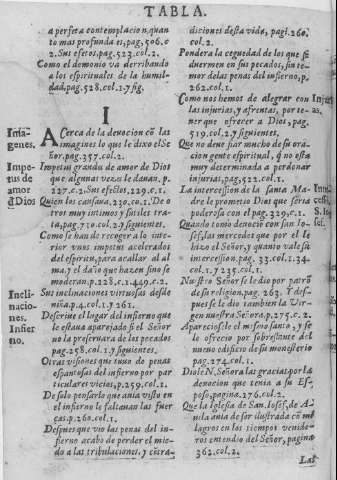 TABLA.
a perfeta contemplacion, quan
to mas profunda es, pag, 506. c
2. Sus efetos, pag. 523. col. 2.
Como el demonio va derribando
a los espirituales de la humil-
dad, pag. 528. col. 1. y sig.
I
Imagenes.
Acerca de la deuocion cõ las
imagines lo que le dixo el Se
ñor, pag. 357. col. 2.
Impetus de amor d Dios
Impetus grandes de amor de Dios
que algunas vezes le dauan, p.
227. c. 2. Sus efectos, 229. c. 1.
Quien los causaua, 230. co. 1. De o
tros muy intimos y sutiles tra
ta, pag. 710. col. 2. y siguientes.
Como se han de recoger a lo inte
rior vnos impetus acelerados
del espiritu, para acallar al al
ma, y el daño que hazen sino se
moderan, p. 228. c. 1. 449. c. 2.
Inclinaciones.
Sus inclinaciones virtuosas desde
niña, p. 4. col. 1. y 261.
Infierno.
Descriue el lugar del infierno que
le estaua aparejado si el Señor
no la preseruara de los pecados
pag. 258. col. 1. y siguientes.
Otras visiones que tuuo de penas
espantosas del infierno por par
ticulares vicios, p. 259. col. 1.
De solo pensarlo que auia visto en
el infierno le faltauan las fuer
cas. p. 260. col. 1.
Despues que vio las penas del in
fierno acabo de perder el mie-
do a las tribulaciones, y contra-
diciones desta vida, pagi. 260.
col. 2.
Pondera la ceguedad de los que se
duermen en sus pecados, sin te
mor delas penas del infierno, p.
262. col. 1.
Como nos hemos de alegrar con
las injurias, y afrentas, por te-
ner que ofrecer a Dios, pag.
519. col. 2. y siguientes.
Que no deue fiar mucho de su ora-
cion gente espiritual, q̃ no esta
muy determinada a perdonar
injurias, pag, 522. col. 1.
La intercession de la Santa Ma-
dre le prometio Dios que seria
poderosa con el pag. 329. c. 1.
Quando tomo deuocion con san Io
sef, las mercedes que por el le
hizo el Señor, y quanto vale su
intercession. pag. 33. col. 1. 34.
col. 1. y 235. col. 1.
Nuestro Señor se le dio por patrõ
de su religion, pag. 263. Y des-
pues se le dio tambien la Vir-
gen nuestra Señora. p. 275. c. 2.
Apareciosele el mesmo santo, y se
le ofrecio por sobrestante del
nuuo edificio de su monesterio
pag. 274. col. 1.
Diole N. Señora las gracias por la
deuocion que tenia a su Es-
poso, pagina, 276. col. 2.
Que la iglesia de San. Iosef, de A-
uila auia de ser ilustrada cõ mi
lagros en los tiempos venide-
ros entendio del Señor, pagina
362. col. 2.
Las